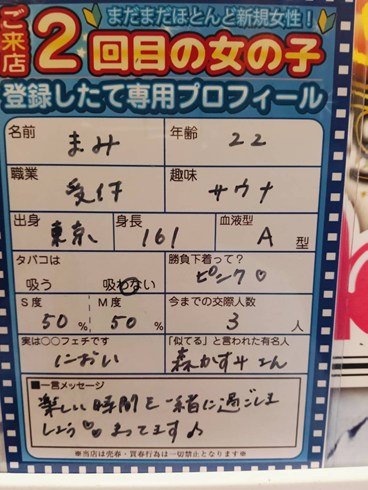 まだまだほとんど新規女性!
ご来店2回目の女の子
登録したて専用プロフィール
名前 まみ 年齢 22
職業 受付 趣味 サウナ
出身 東京 身長 161 血液型 A 型
タバコは 勝負下着って?
吸う 吸わない ピンク♡
S度 M度 今までの交際人数
50% 50% 3人
実は〇〇フェチです 「似てる」と言われた有名人
におい 森かすみさん
■一言メッセージ
楽しい時間を一緒に過ごしま
しょう♡♡まってます♪
※当店は売春・買春行為は一切禁止となります※